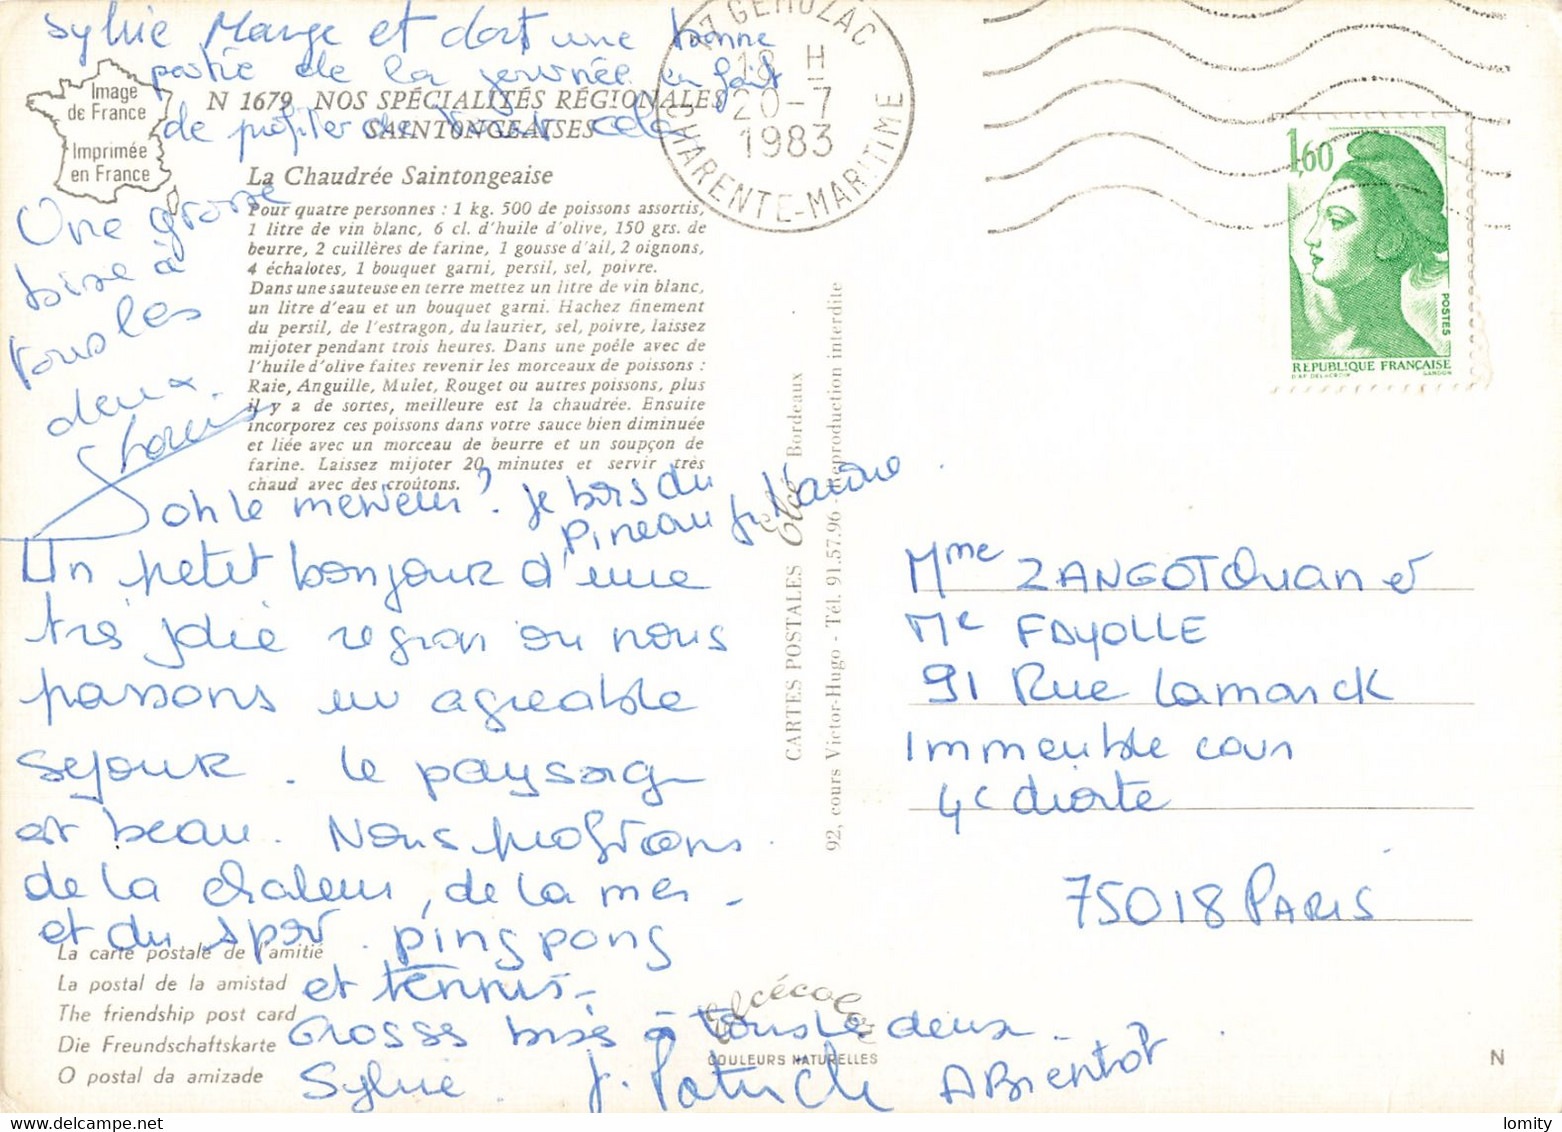 Sylvie Mange et dort une bonne
partie de la journée en fait
de profiter de tout cela
Image
de France
Imprimée
en France
N 1679 NOS SPÉCIALITÉS RÉGIONALES
SAINTONGEAISES
La Chaudrée Saintongeaise
Pour quatre personnes : 1 kg. 500 de poissons assortis,
1 litre de vin blanc, 6 cl. d'huile d'olive, 150 grs. de
beurre, 2 cuillères de farine, 1 gousse d'ail, 2 oignons,
4 échalotes, 1 bouquet garni, persil, sel, poivre.
Dans une sauteuse en terre mettez un litre de vin blanc,
un litre d'eau et un bouquet garni. Hachez finement
du persil, de l'estragon, du laurier, sel, poivre, laissez
mijoter pendant trois heures. Dans une poêle avec de
l'huile d'olive faites revenir les morceaux de poissons :
Raie, Anguille, Mulet, Rouget ou autres poissons, plus
il y a de sortes, meilleure est la chaudrée. Ensuite
incorporez ces poissons dans votre sauce bien diminuée
et liée avec un morceau de beurre et un soupçon de
farine. Laissez mijoter 20 minutes et servir très
chaud avec des croûtons.
Une grosse
bise à
tous les
deux.
oh le menteur? je bois du
Pineau
Un petit bonjour d'une
très jolie region ou nous
passons un agreable
sejour. le paysage
est beau. Nous profitons
de la chaleur, de la mer
et du sport. ping pong
et tennis
Grosse bise à tous le deux
Sylvie. J. Patrick A Bientot
La carte postale de l'amitié
La postal de la amistad
The friendship post card
Die Freundschaftskarte
O postal da amizade
CARTES POSTALES Elcé Bordeaux
92, cours Victor-Hugo - Tél. 91.57.96 - Reproduction interdite
Elcécolor
COULEURS NATURELLES
17 GEMOZAC
18 H
20-7
1983
CHARENTE-MARITIME
1,60
POSTES
REPUBLIQUE FRANÇAISE
D'AP. DELACROIX GANDON
Mme ZANGOTOuan et
Me FAYOLLE
91 Rue Lamarck
Immeuble cour
4e droite
75018 PARIS
N
lomity